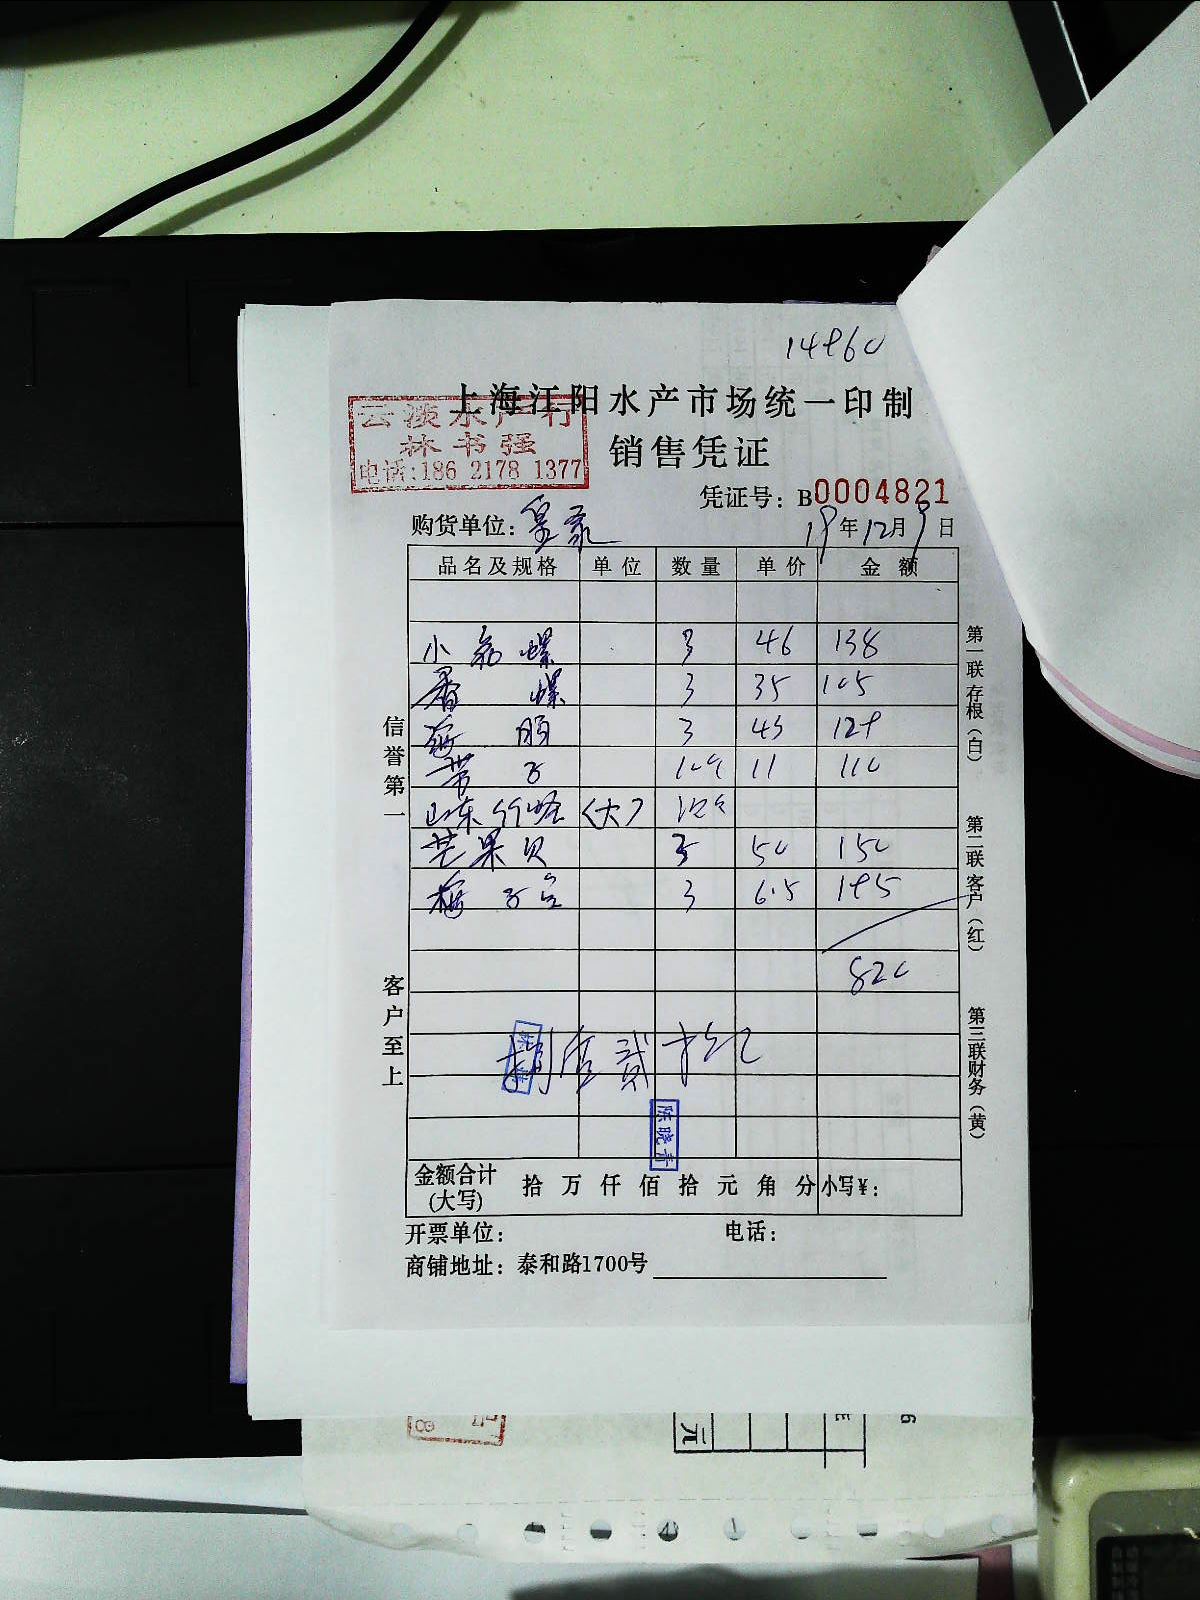 14960
上海江阳水产市场统一印制
云淡水产行
林书强
电话:186 2178 1377
销售凭证
凭证号: B0004821
购货单位:
19年12月9日
品名及规格 单位 数量 单价 金额
小 螺 3 46 138
香 螺 3 35 105
3 43 129
子 11 110
山东 (大)
芒果贝 3 50 150
3 65 195
820
捌佰贰拾元
陈晓青
金额合计(大写) 拾 万 仟 佰 拾 元 角 分 小写¥:
开票单位: 电话:
商铺地址: 泰和路1700号
信誉第一
客户至上
第一联 存根(白)
第二联 客户(红)
第三联 财务(黄)
元